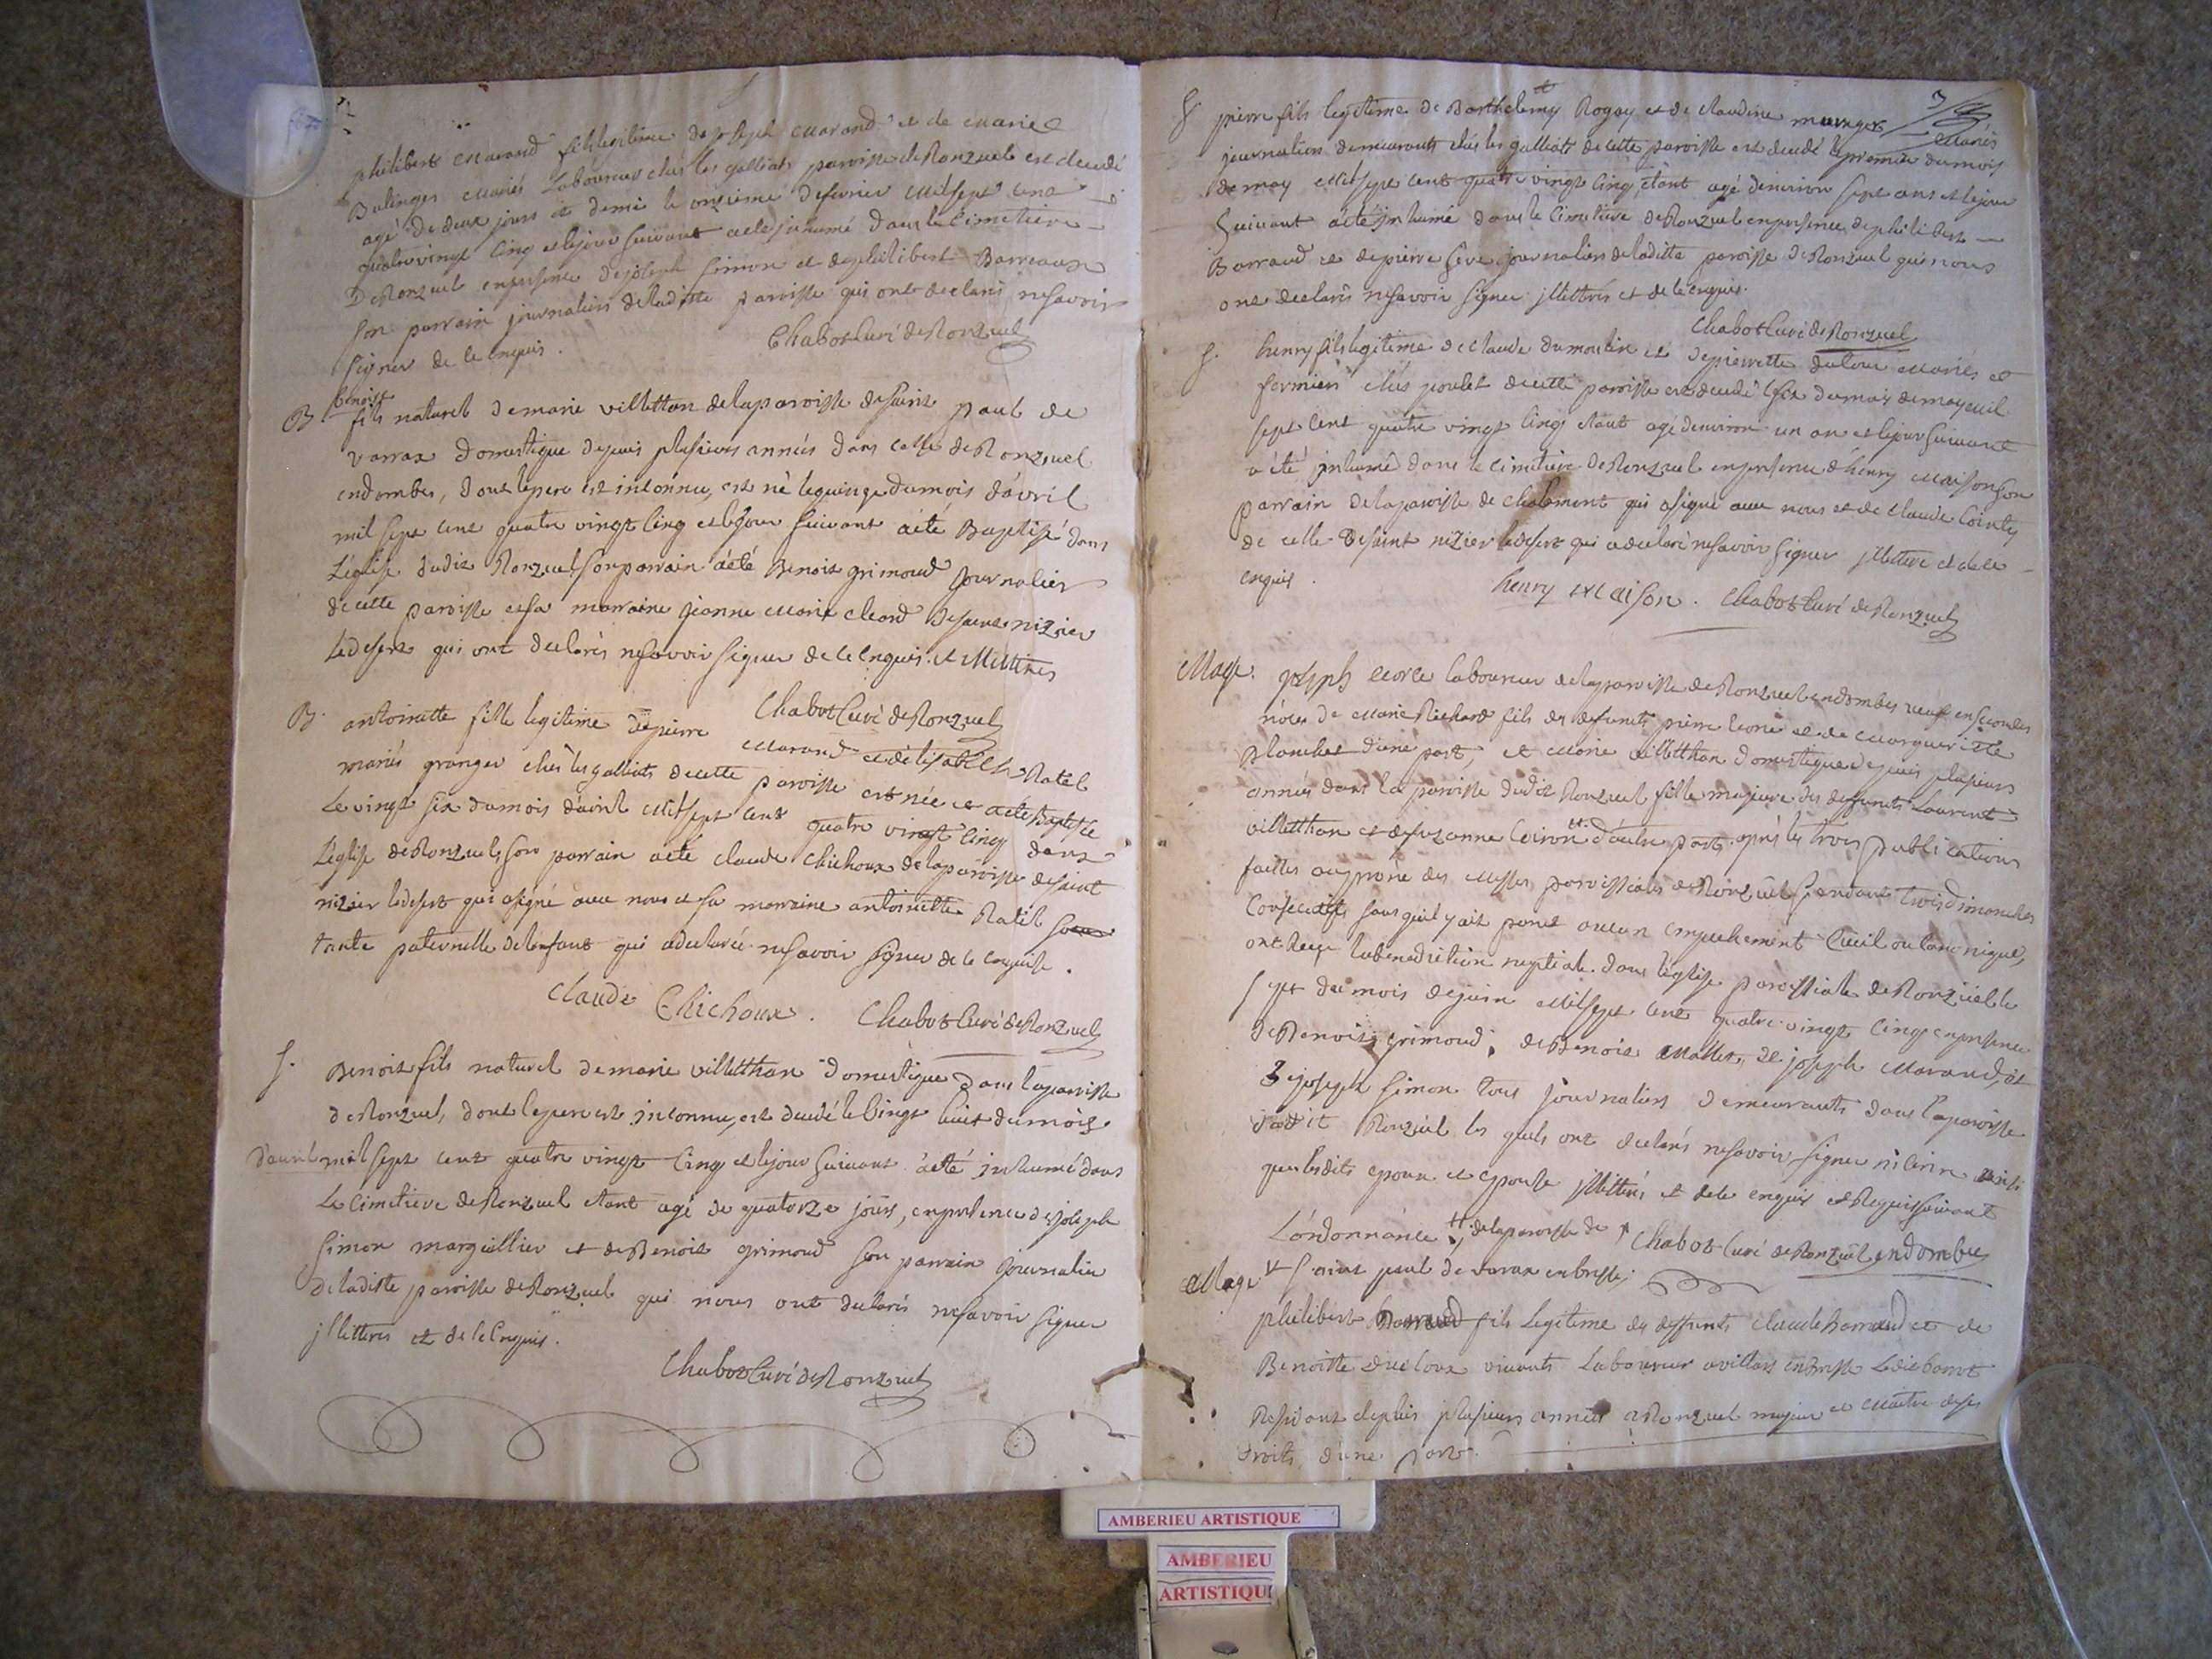 philibert Marand fils legitime de joseph Marand et de Marie
Bulinger Mariés Laboureur chés les galliats paroisse de Ronzuel est decedé
agé de deux jours et demi le onzieme de fevrier mil sept cent
quatre vingt cinq et le jour suivant a eté jnhumé dans le Cimetiere
de Ronzuel en presence de joseph Simon et de philibert Barreaux
son parrain journaliers de laditte paroisse qui ont declarés ne savoir
signer de ce enquis.
Chabot Curé de Ronzuel
B benoist
fils naturel de marie villetton de la paroisse de saint paul de
varax domestique depuis plusieurs années dans celle de Ronzuel
en dombes, dont le pere est inconnu, est né le quinze du mois d'avril
mil sept cent quatre vingt cinq et le jour suivant a été Baptisé dans
L'église dudit Ronzuel son parrain a été Benoit grimoud journalier
de cette paroisse et sa marraine jeanne Marie cleard de saint nizier
le desert qui ont declarés ne savoir signer de ce enquis et illettrés
Chabot Curé de Ronzuel
B. antoinette fille legitime de pierre Marand et d'elisabeth Ratel
mariés granger chés les galliats de cette paroisse est née et a eté Baptisée
le vingt six du mois d'avril mil sept cent quatre vingt cinq dans
l'église de Ronzuel, son parrain a eté claude Chichoux de la paroisse de saint
nizier le desert qui a signé avec nous et sa marraine antoinette Ratel
tante paternelle de l'enfant qui a declarée ne savoir signer de ce enquise.
Claude Chichoux. Chabot Curé de Ronzuel
S. Benoit fils naturel de marie villetthan domestique dans la paroisse
de Ronzuel, dont le pere est jnconnu, est decedé le vingt huit du mois
d'avril mil sept cent quatre vingt cinq et le jour suivant a été jnhumé dans
Le Cimetiere de Ronzuel etant agé de quatorze jours, en presence de joseph
Simon marguillier et de Benoit grimoud son parrain journalier
de laditte paroisse de Ronzuel qui nous ont declarés ne savoir signer
jllettrés et de ce Enquis.
Chabot Curé de Ronzuel
S pierre fils legitime de Barthelemy Rogay et de claudine Mariés
journaliers demeurants chés les galliats de cette paroisse est decedé le premier du mois
de may mil sept cent quatre vingt cinq, étant agé d'environ sept ans et le jour
suivant a été jnhumé dans le Cimetiere de Ronzuel en presence de philibert
Barraud et de pierre seve journaliers de laditte paroisse de Ronzuel qui nous
ont declarés ne savoir signer jllettrés et de ce enquis.
Chabot Curé de Ronzuel
S. henry fils legitime de claude dumoulin et de pierrette dutour Mariés et
fermiers chés poulet de cette paroisse est decedé le six du mois de may mil
sept cent quatre vingt cinq etant agé d'environ un an et le jour suivant
a été jnhumé dans le Cimetiere de Ronzuel en presence d'henry Maison son
parrain de la paroisse de chalamont qui a signé avec nous et de claude Cointy
de celle de saint nizier le desert qui a declaré ne savoir signer jllettré et de ce
enquis.
henry Maison. Chabot Curé de Ronzuel
Mage. joseph leorce laboureur de la paroisse de Ronzuel en dombes veuf en secondes
nôces de Marie Richard fils des defunts pierre leorce et de Marguerite
planches d'une part, et Marie villetthan domestique depuis plusieurs
années dans la paroisse dudit Ronzuel fille majeure des defunts Laurent
villetthan et de suzanne Coiron d'autre part, après les trois publications
faittes au prône des Messes paroissiales de Ronzuel pendant trois dimanches
Consecutifs sans qu'il y ait parut aucun empechement Civil ou Canonique,
ont Reçu la benediction nuptiale dans l'église paroissiale de Ronzuel le
sept du mois de juin mil sept cent quatre vingt cinq en presence
de Benoit grimoud, de Benoit Mallet, de joseph Marand, et
de joseph Simon tous journaliers demeurants dans la paroisse
dudit Ronzuel les quels ont declarés ne savoir signer ni écrire ainsi
que lesdits epoux et epouse jllettrés et de ce enquis et Requis suivant
L'ordonnance. de la paroisse de Chabot Curé de Ronzuel en dombes
saint paul de varax en bresse;
Mage
philibert Barraud fils Legitime des deffunts claude barraud et de
Benoitte Ducloux vivants Laboureur a villars en Bresse Ledit barrot
Residant depuis plusieurs années a Ronzuel majeur et Maitre de ses
droits, d'une part.
AMBERIEU ARTISTIQUE
AMBERIEU
ARTISTIQU